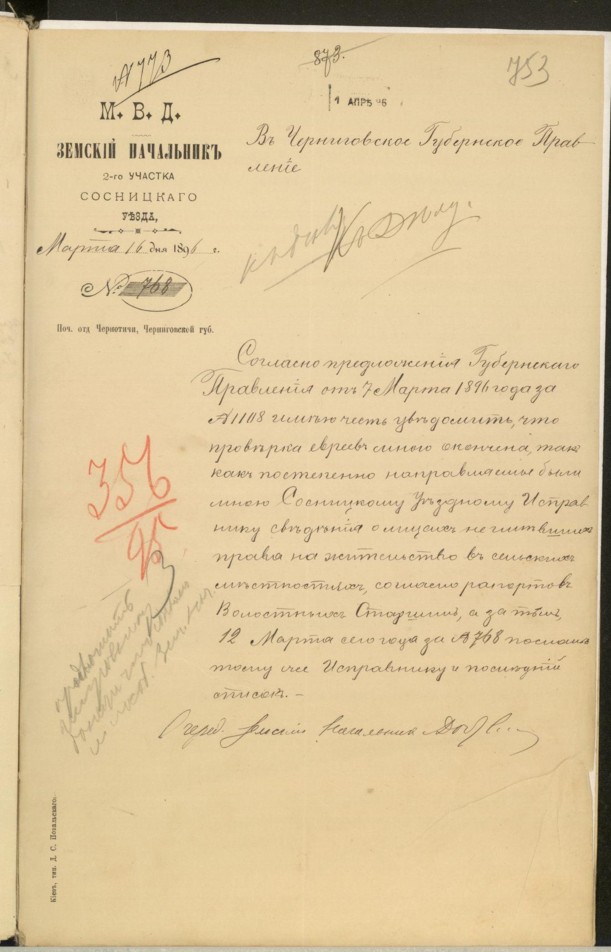 № 773
873.
753
1 АПРѢ 96
М. В. Д.
ЗЕМСКІЙ НАЧАЛЬНИКЪ
2-го УЧАСТКА
СОСНИЦКАГО
УѢЗДА,
Марта 16 дня 1896 г.
№ 768
Поч. отд. Чернотичи, Черниговской губ.
Въ Черниговское Губернское Прав-
леніе
Согласно предложенія Губернскаго
Правленія отъ 7 Марта 1896 года за
№ 1108 имѣю честь увѣдомить, что
провѣрка евреевъ мною окончена, такъ
какъ постепенно направляемы были
мною Сосницкому Уѣздному Исправ-
нику свѣдѣнія о лицахъ не имѣвшихъ
права на жительство въ сельскихъ
мѣстностяхъ, согласно рапортовъ
Волостныхъ Старшинъ, а за тѣмъ,
12 Марта сего года за № 768 посланъ
тому же Исправнику и послѣдній
списокъ. –
Земскій Начальникъ
356
95
Кіевъ, тип.